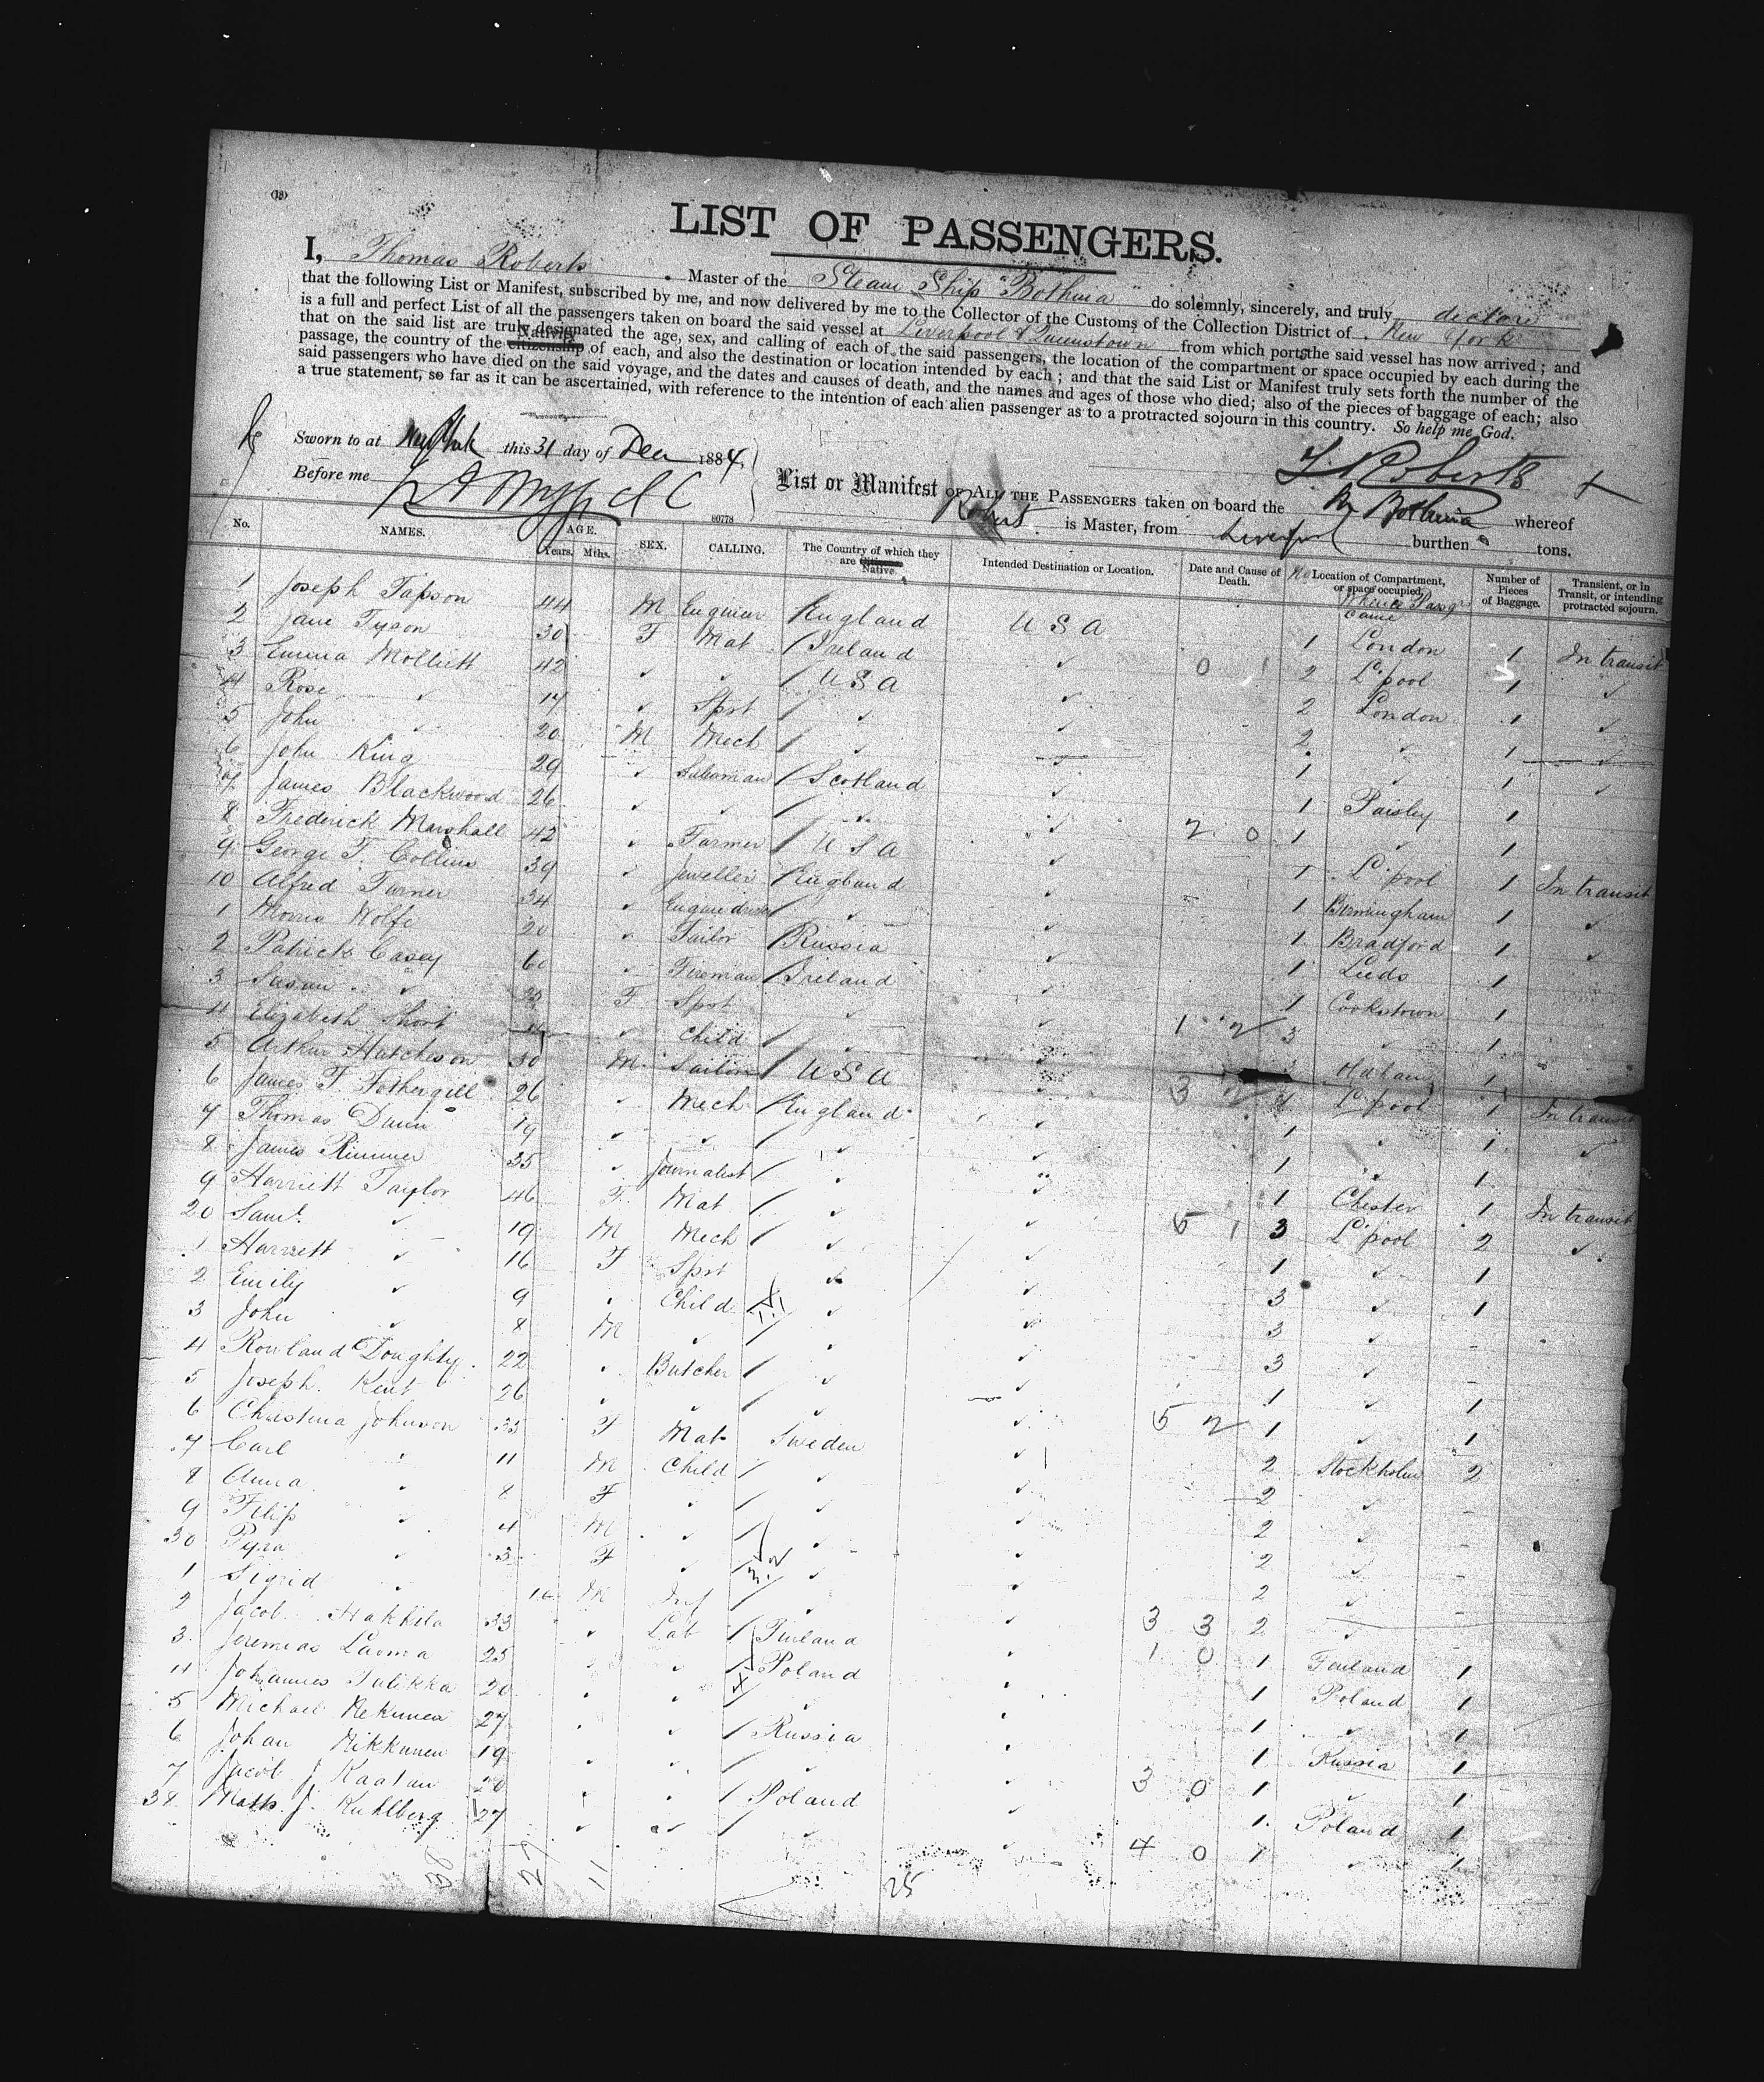 (18)
LIST OF PASSENGERS.
I, Thomas Roberts Master of the Steam Ship "Bothnia" do solemnly, sincerely, and truly declare
that the following List or Manifest, subscribed by me, and now delivered by me to the Collector of the Customs of the Collection District of New York
is a full and perfect List of all the passengers taken on board the said vessel at Liverpool & Queenstown from which ports the said vessel has now arrived; and
that on the said list are truly designated the age, sex, and calling of each of the said passengers, the location of the compartment or space occupied by each during the
passage, the country of the Nativity citizenship of each, and also the destination or location intended by each; and that the said List or Manifest truly sets forth the number of the
said passengers who have died on the said voyage, and the dates and causes of death, and the names and ages of those who died; also of the pieces of baggage of each; also
a true statement, so far as it can be ascertained, with reference to the intention of each alien passenger as to a protracted sojourn in this country. So help me God.
Sworn to at New York this 31 day of Dec 1884, T Roberts
Before me
List or Manifest OF ALL THE PASSENGERS taken on board the Bothnia whereof
80778 Roberts is Master, from Liverpool burthen tons.
No. NAMES. AGE. Years. Mths. SEX. CALLING. The Country of which they are Citizens Native. Intended Destination or Location. Date and Cause of Death. No Location of Compartment, or space occupied. Whence Passgr Came Number of Pieces of Baggage. Transient, or in Transit, or intending protracted sojourn.
1 Joseph Tapson 44 M England U S A 1 London 1 In transit
2 Jane Tyson 30 F Mat Ireland ✓ 0 1 2 L'pool 1 ✓
3 Emma 42 ✓ ✓ U S A ✓ 2 London 1 ✓
4 Rose ✓ 17 ✓ Spst ✓ ✓ 2 ✓ 1 ✓
5 John ✓ 20 M Mech ✓ ✓ 1 ✓ 1 ✓
6 John King 29 ✓ Salesman Scotland ✓ 1 Paisley 1
7 James Blackwood 26 ✓ ✓ ✓ ✓ 2 0 1 ✓ 1
8 Frederick Marshall 42 ✓ Farmer U S A ✓ 1 L'pool 1 In transit
9 George T. Collins 39 ✓ Jeweller England ✓ 1 Birmingham 1 ✓
10 Alfred Turner 34 ✓ Engine driver ✓ ✓ 1 Bradford 1 ✓
1 Morris Wolfe 20 ✓ Tailor Russia ✓ 1 Leeds 1
2 Patrick Casey 60 ✓ Fireman Ireland ✓ 1 Cookstown 1
3 Susan ✓ 25 F Spst ✓ ✓ 1 2 3 ✓ 1
4 Elizabeth Short ✓ Child ✓ ✓ 3 Oldham 1
5 Arthur Hutcheson 30 M Sailor U S A ✓ 3 2 1 L'pool 1 In transit
6 James T. Fothergill 26 ✓ Mech England ✓ 1 ✓ 1 ✓
7 Thomas Dunn 19 ✓ ✓ ✓ ✓ 1 ✓ 1
8 James Rimmer 35 ✓ Journalist ✓ ✓ 1 Chester 1 In transit
9 Harriett Taylor 46 F Mat ✓ ✓ 5 1 3 L'pool 2 ✓
20 Saml. ✓ 19 M Mech ✓ ✓ 1 ✓ 1
1 Harriett ✓ 16 F Spst ✓ ✓ 3 ✓ 1
2 Emily ✓ 9 ✓ Child ✓ ✓ 3 ✓ -
3 John ✓ 8 M ✓ ✓ ✓ 3 ✓ -
4 Rowland Doughty 22 ✓ Butcher ✓ ✓ 1 ✓ 1
5 Joseph Kent 26 ✓ ✓ ✓ ✓ 5 2 1 ✓ 1
6 Christina Johnson 35 F Mat Sweden ✓ 2 Stockholm 2
7 Carl ✓ 11 M Child ✓ ✓ 2 ✓ -
8 Anna ✓ 8 F ✓ ✓ ✓ 2 ✓ -
9 Filip ✓ 4 M ✓ ✓ ✓ 2 ✓ -
30 Pyra ✓ 3 F ✓ ✓ ✓ 2 ✓ -
1 Sigrid ✓ 10 M Inf ✓ ✓ 3 3 2 ✓ -
2 Jacob Hakkila 33 ✓ Lab Finland ✓ 1 0 1 Finland 1
3 Jeremias Laoma 25 ✓ ✓ Poland ✓ 1 Poland 1
4 Johannes Talikka 20 ✓ ✓ ✓ ✓ 1 ✓ 1
5 Michael 27 ✓ ✓ Russia ✓ 1 Russia 1
6 Johan Mikkunen 19 ✓ ✓ ✓ ✓ 3 0 1 ✓ 1
7 Jacob J Kaatan 20 ✓ ✓ Poland ✓ 1 Poland 1
38 Matts J. Kuhlberg 27 ✓ ✓ ✓ ✓ 4 0 1 ✓ 1
38 27 11 25